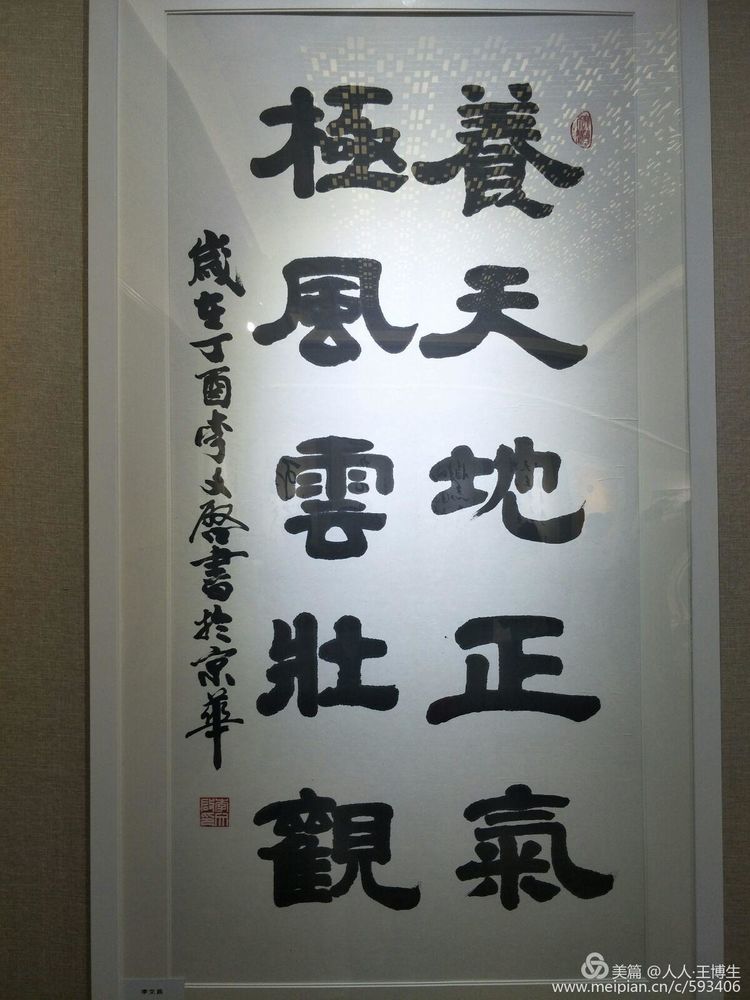 養天地正氣
極風雲壯觀
歲在丁酉李文啓書於京華
美篇 @人人·王博生
www.meipian.cn/c/593406